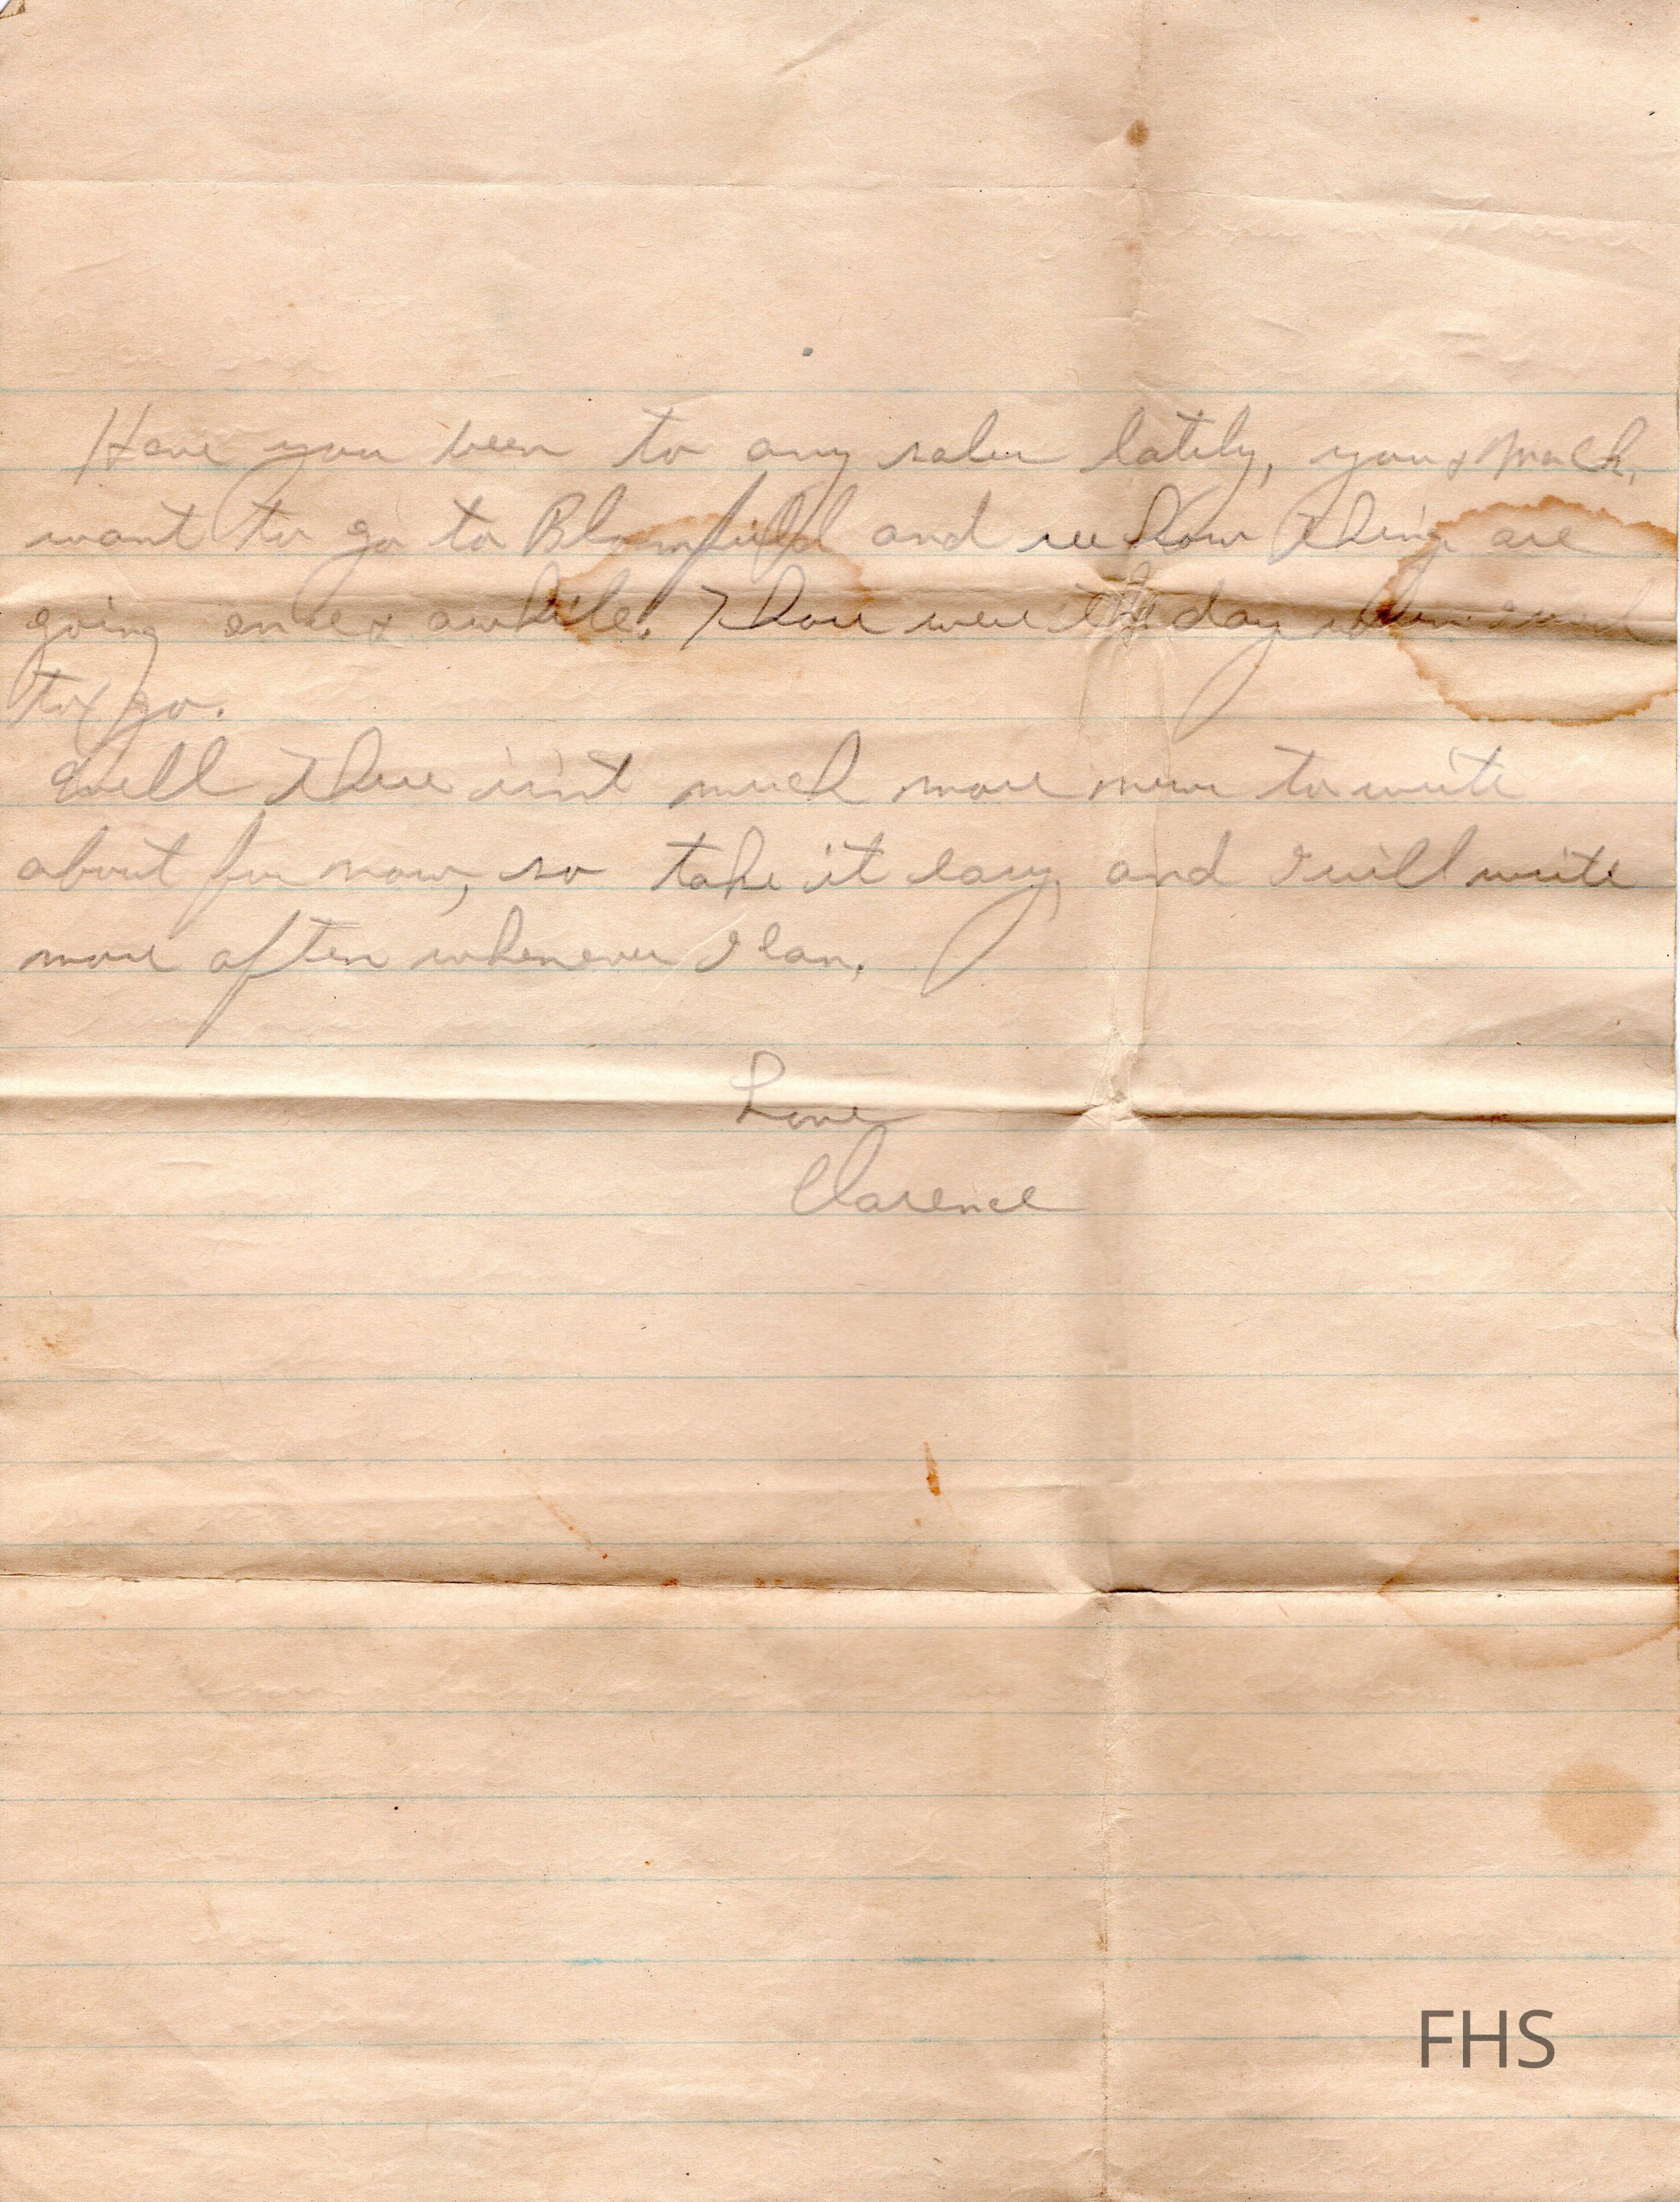 Have you been to any sales lately, you & Mack,
want to go to Bloomfield and see how things are
going once & awhile. Those were the days when I used
to go.
Well there isn't much more news to write
about for now, so take it easy, and I will write
more often whenever I can.
Love
Clarence
FHS